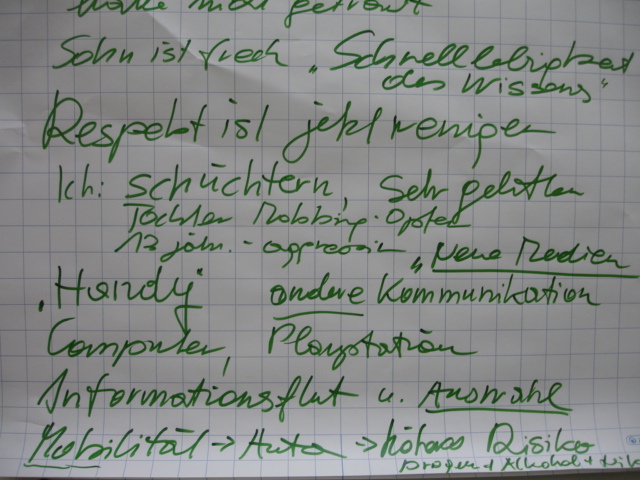 hätte mich getraut
Sohn ist frech „Schnelllebigkeit
des Wissens“
Respekt ist jetzt weniger
Ich: schüchtern, sehr gelitten
Tochter Mobbing-Opfer
13 jähr. - aggressiv „Neue Medien
„Handy“ andere Kommunikation
Computer, Playstation
Informationsflut u. Auswahl
Mobilität → Auto → höheres Risiko
Drogen + Alkohol +